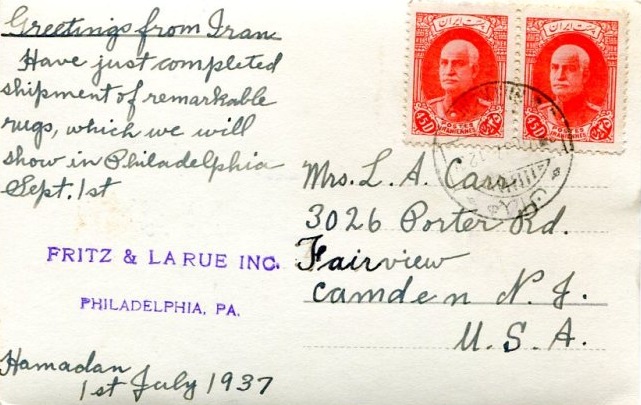 Greetings from Iran
Have just completed
shipment of remarkable
rugs, which we will
show in Philadelphia
Sept. 1st
FRITZ & LARUE INC.
PHILADELPHIA, PA.
Hamadan
1st July 1937
POSTES
IRANIENNES
POSTES
IRANIENNES
Mrs. L. A.
3026 Porter Rd.
Fairview
Camden N. J.
U. S. A.